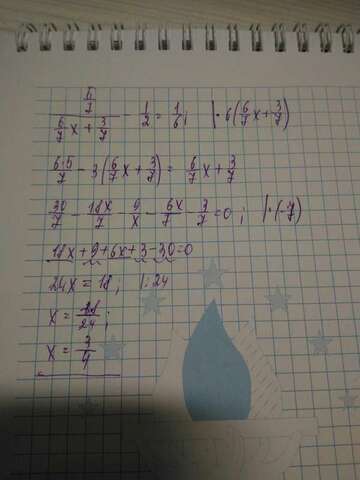 5/7 / (6/7 x + 3/7) - 1/2 = 1/6; |·6(6/7 x + 3/7)
6·5/7 - 3(6/7 x + 3/7) = 6/7 x + 3/7
30/7 - 18x/7 - 9/x - 6x/7 - 3/7 = 0; |·(-7)
18x + 9 + 6x + 3 - 30 = 0
24x = 18; |:24
x = 18/24;
x = 3/4